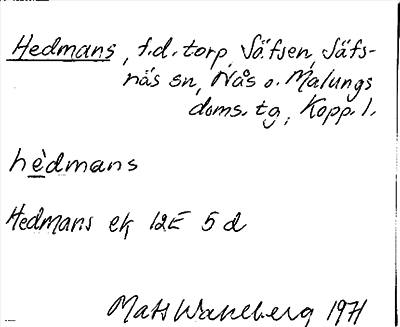 Hedmans, f.d. torp, Säfsen, Säfs-
näs sn, Nås o. Malungs
doms. tg, Kopp. l.
hèdmans
Hedmans ek 12E 5d
Mats Wahlberg 1971